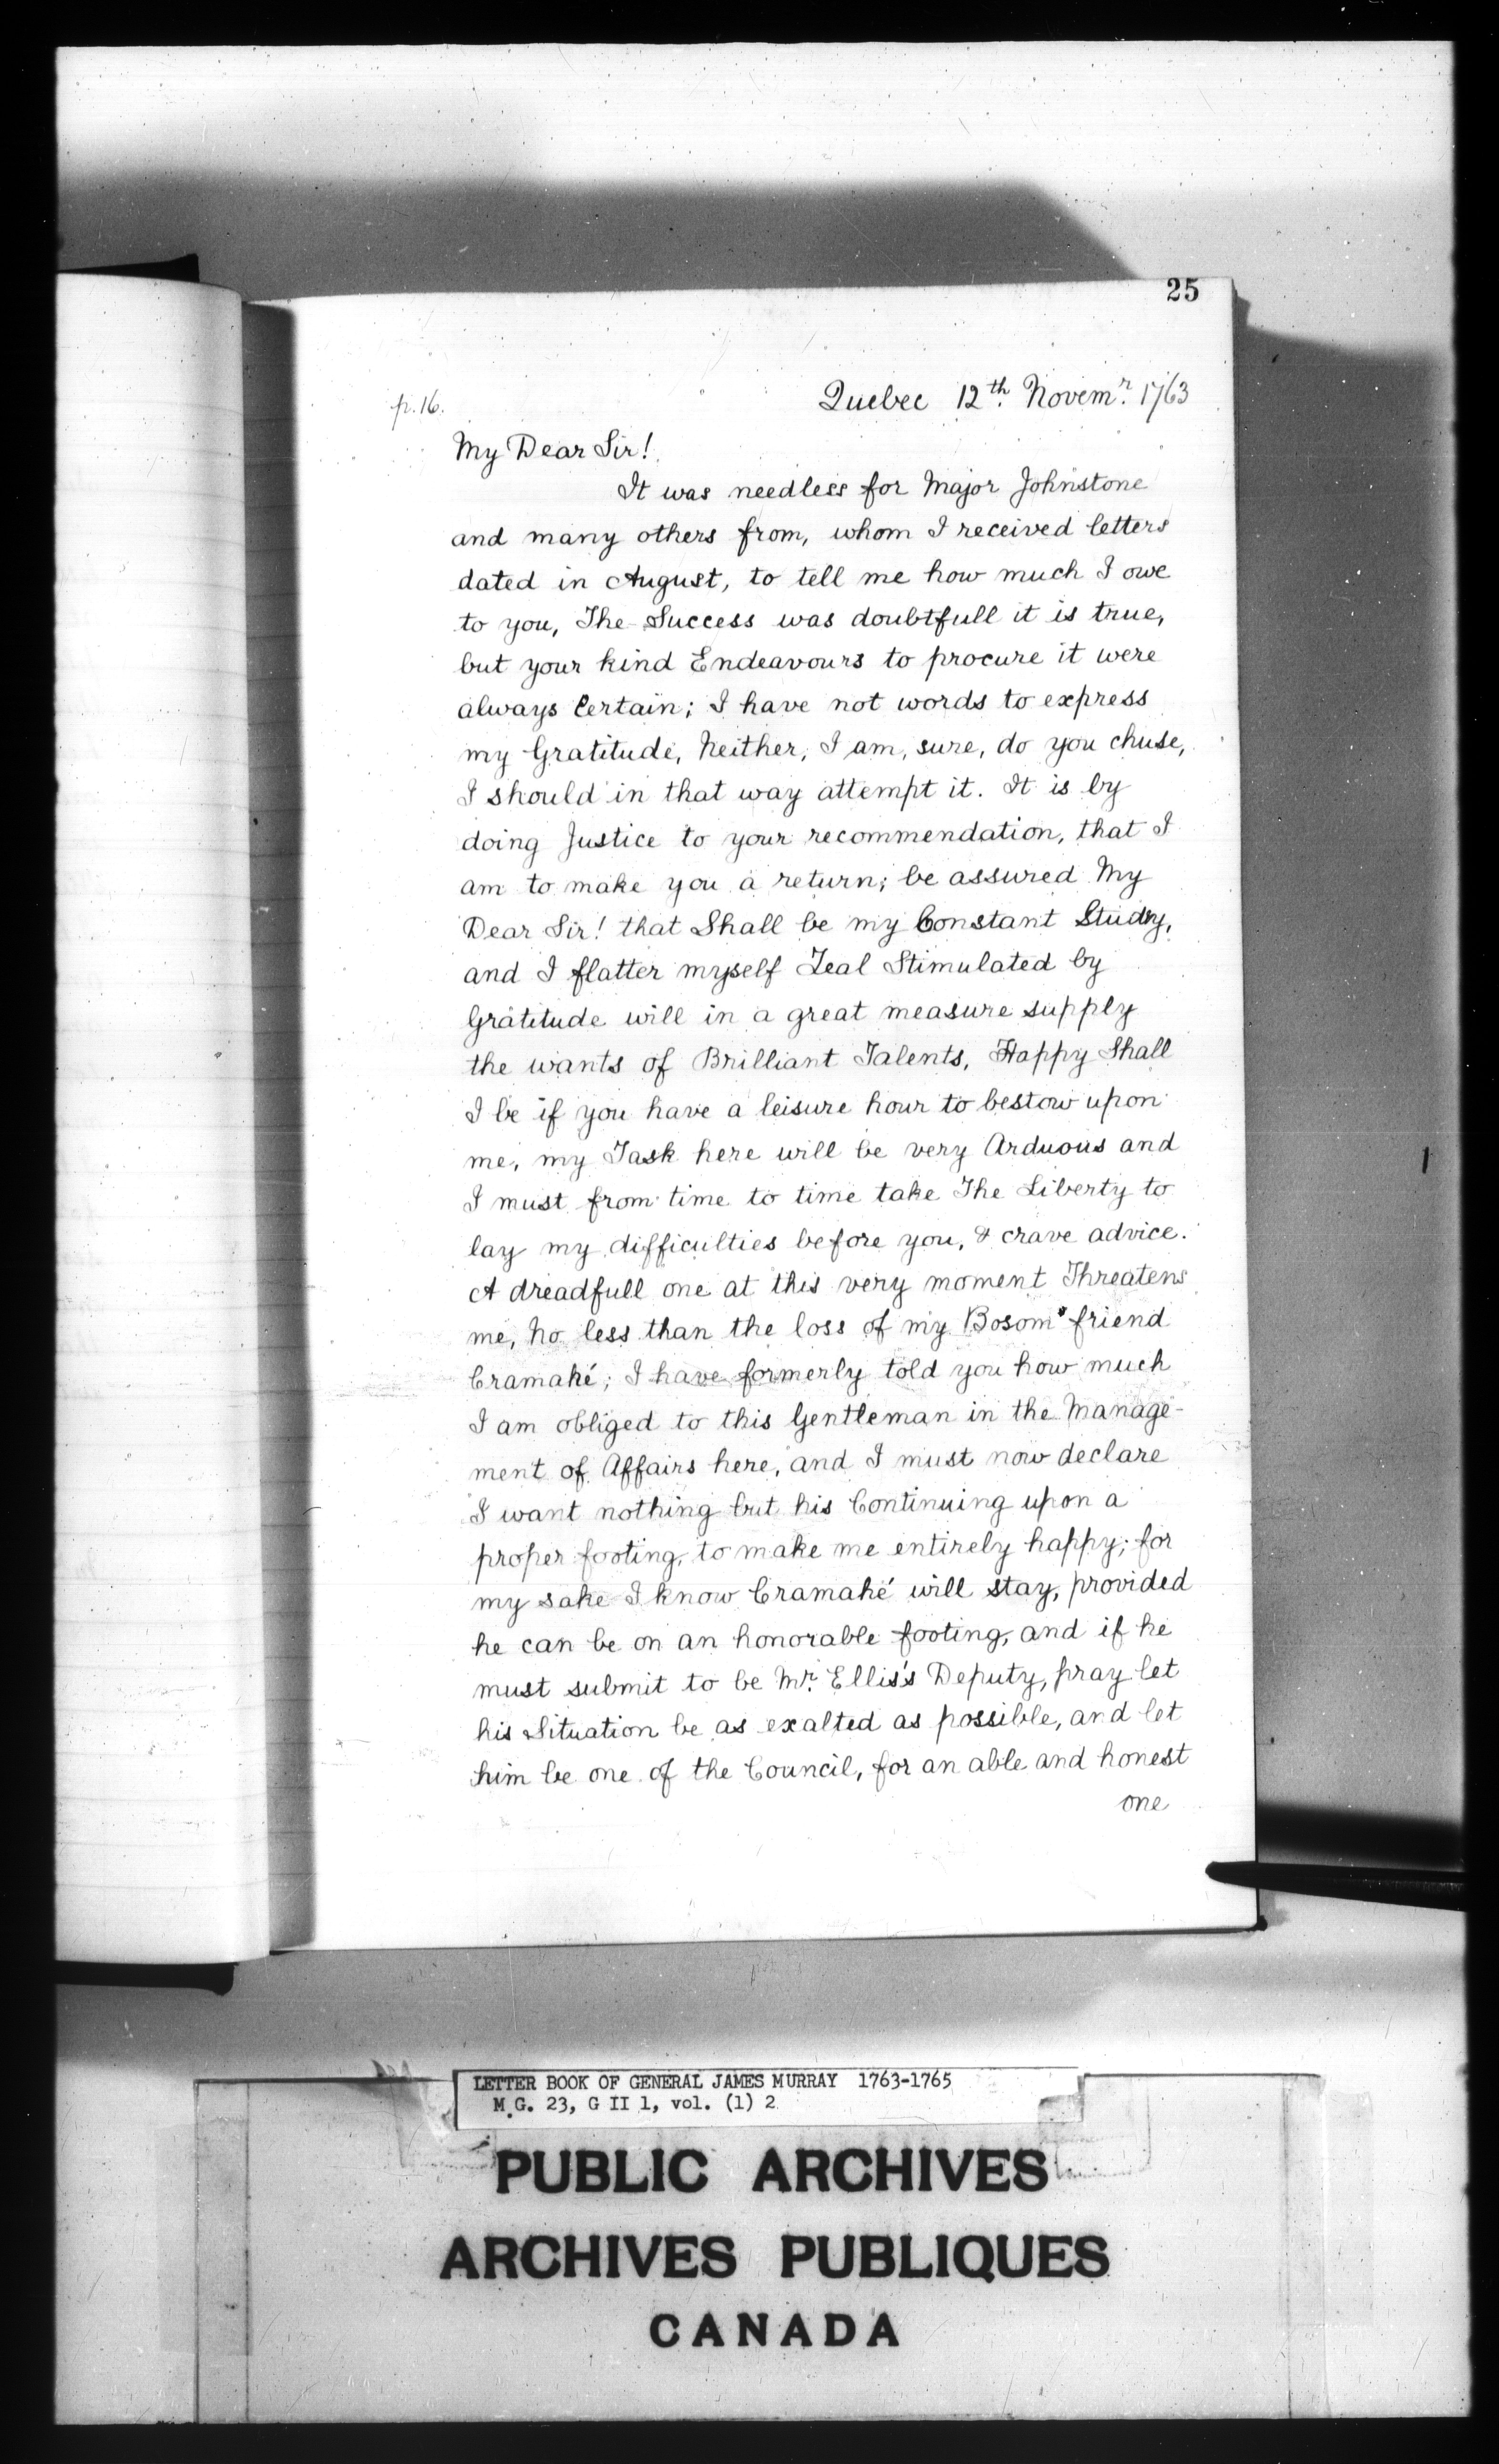 25
p.16.
Quebec 12th. Novemr. 1763
My Dear Sir!
It was needless for Major Johnstone
and many others from, whom I received letters
dated in August, to tell me how much I owe
to you, The Success was doubtfull it is true,
but your kind Endeavours to procure it were
always Certain; I have not words to express
my Gratitude, Neither, I am, sure, do you chuse,
I should in that way attempt it. It is by
doing Justice to your recommendation, that I
am to make you a return; be assured My
Dear Sir! that Shall be my Constant Study,
and I flatter myself Zeal Stimulated by
Gratitude will in a great measure supply
the wants of Brilliant Talents, Happy Shall
I be if you have a leisure hour to bestow upon
me, my Task here will be very Arduous and
I must from time to time take The Liberty to
lay my difficulties before you, & crave advice.
A dreadfull one at this very moment Threatens
me, No less than the loss of my Bosom friend
Cramahé; I have formerly told you how much
I am obliged to this Gentleman in the Manage-
ment of Affairs here, and I must now declare
I want nothing but his Continuing upon a
proper footing, to make me entirely happy; for
my sake I know Cramahé will stay, provided
he can be on an honorable footing, and if he
must submit to be Mr. Ellis's Deputy, pray let
his Situation be as exalted as possible, and let
him be one of the Council, for an able and honest
one
LETTER BOOK OF GENERAL JAMES MURRAY 1763-1765
M.G. 23, G II 1, vol. (1) 2
PUBLIC ARCHIVES
ARCHIVES PUBLIQUES
CANADA